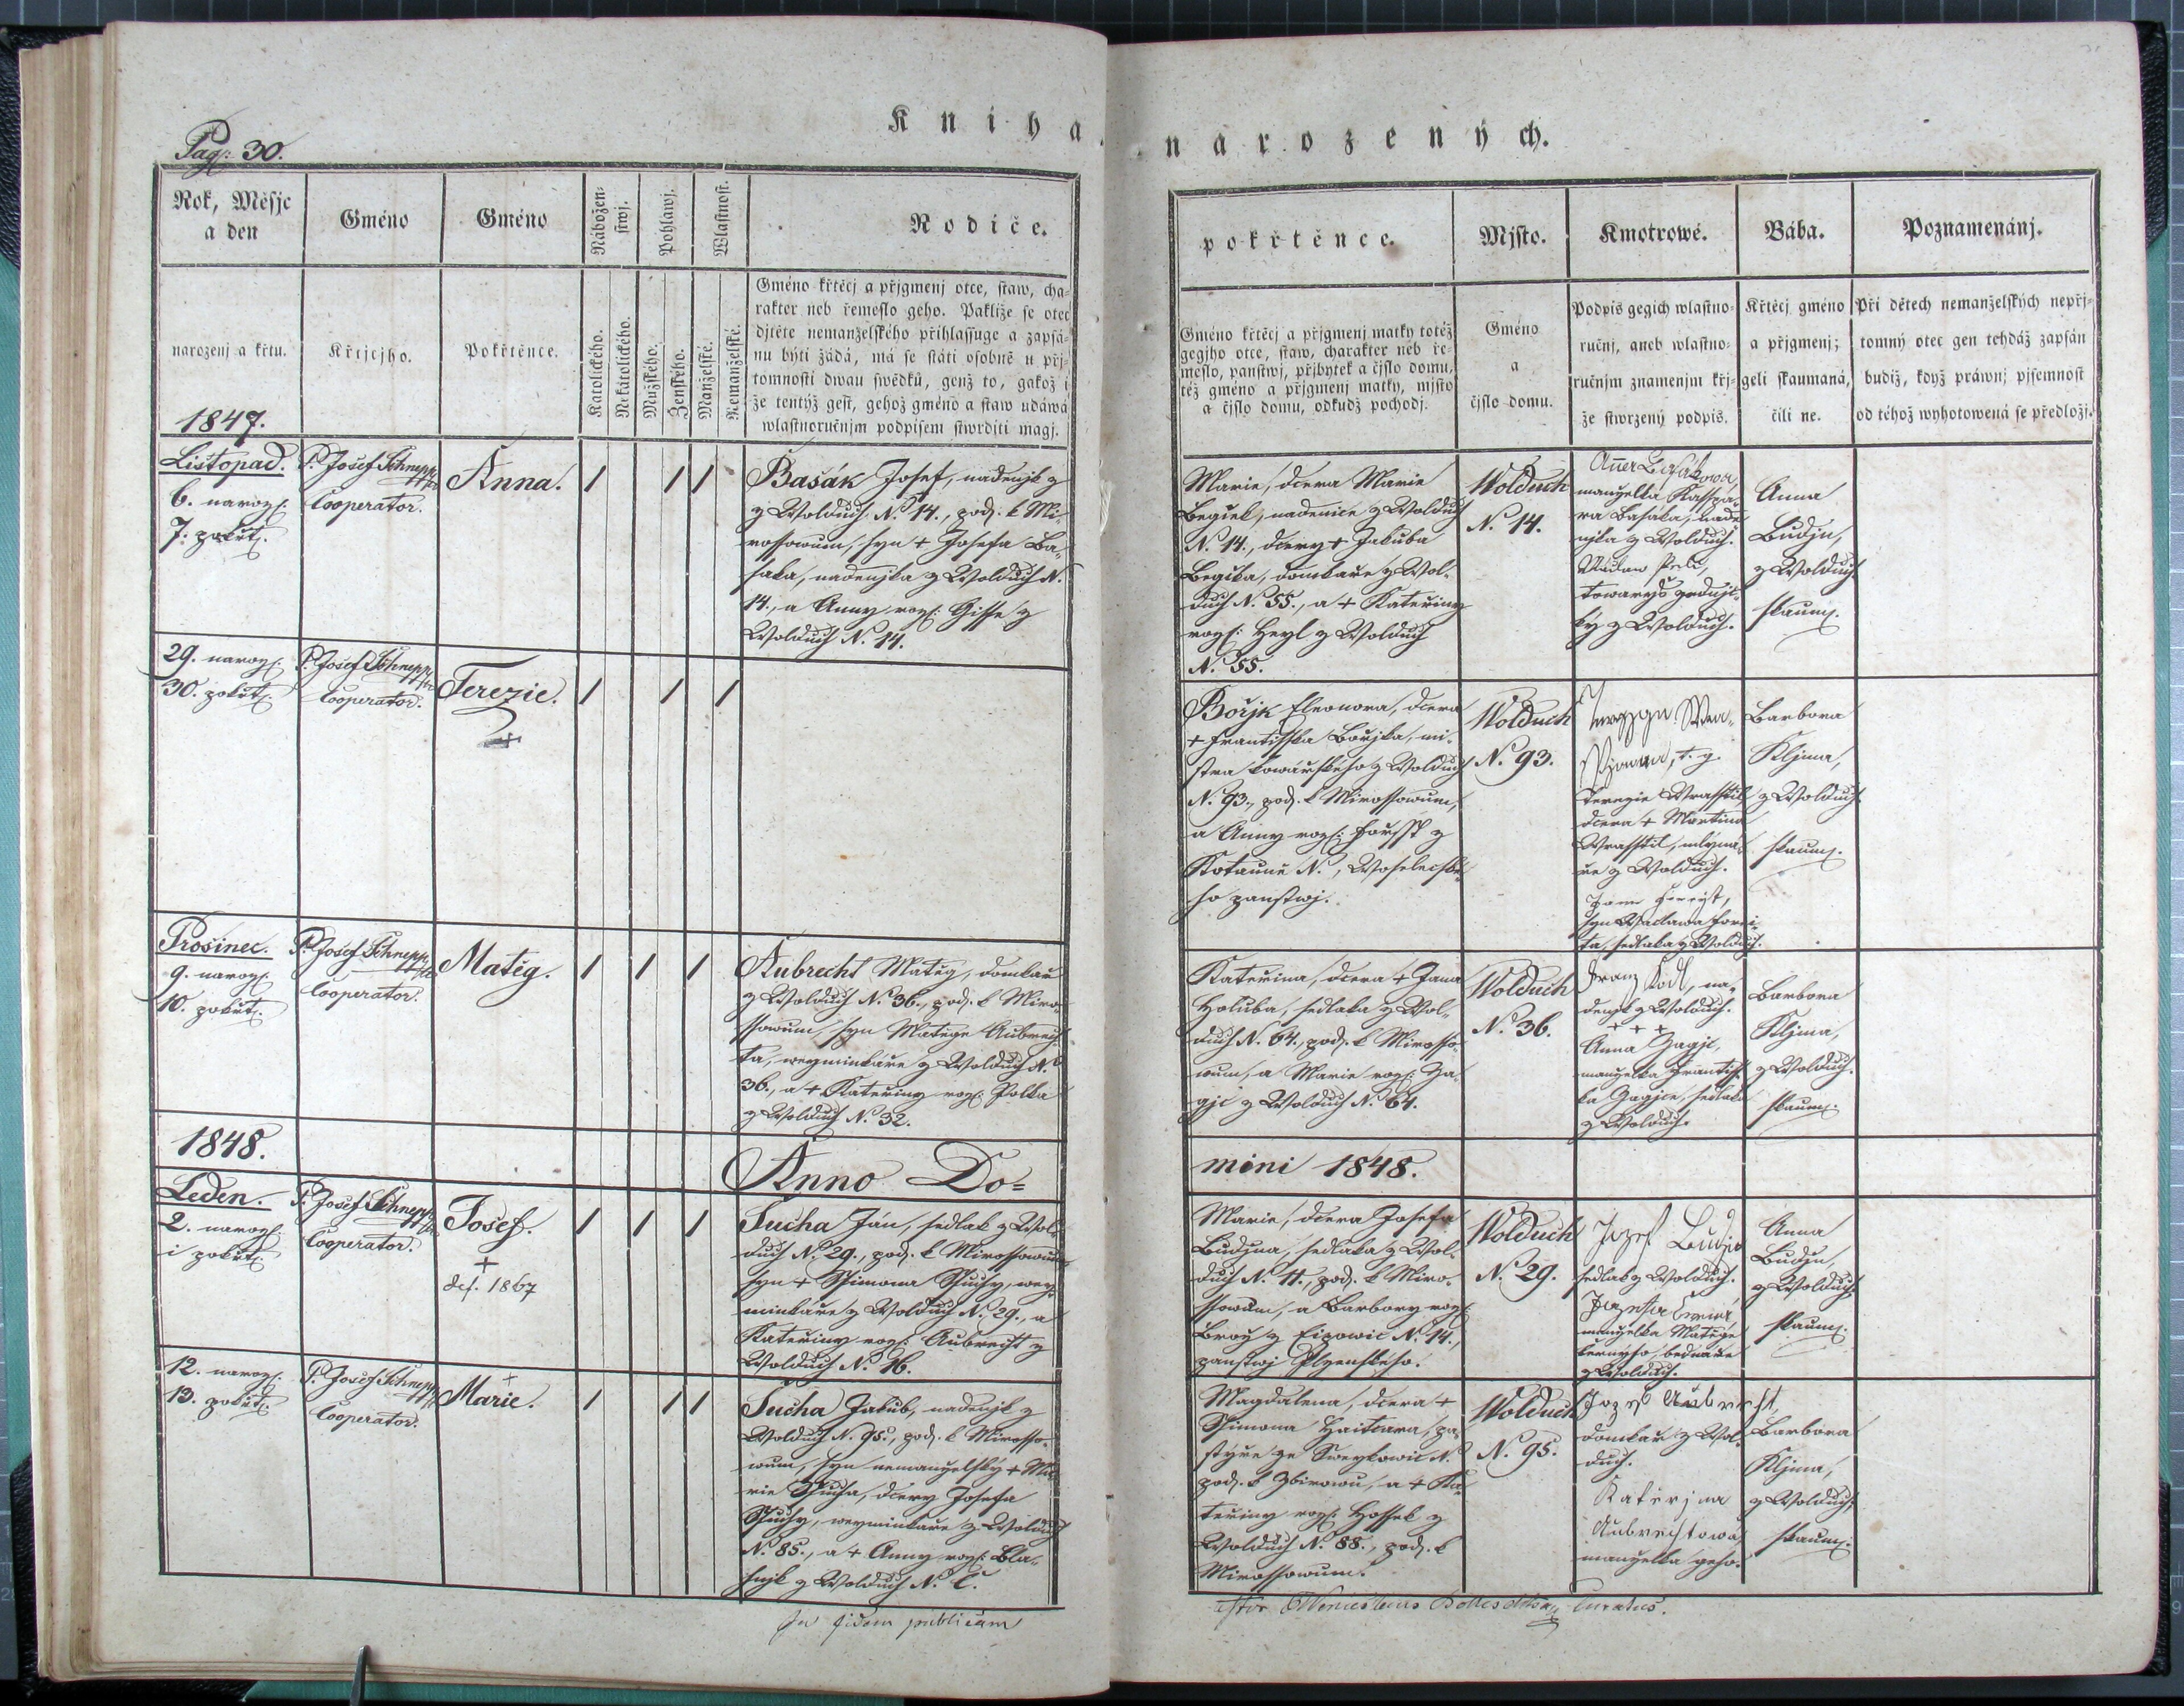 Kniha
narozených.
Pag: 30.
Rok, Měsjc
a den
narozenj a křtu.
1847.
Gméno
Křtjcjho.
Gméno
Pokřtěnce.
Nábožen-
stwj.
Katolického.
Nekatolického.
Pohlawj.
Mužského.
Ženského.
Wlastnost.
Manželské.
Nemanželské.
Rodiče.
Gméno křtěcj a přjgmenj otce, staw, cha-
rakter neb řemeslo geho. Pakliže se otec
djtěte nemanželského přihlassuge a zapsá-
nu býti žádá, má se státi osobně u přj-
tomnosti dwau swědků, genž to, gakož i
že tentýž gest, gehož gméno a staw udáwá
wlastnoručnjm podpisem stwrditi magj.
pokřtěnce.
Gméno křtěcj a přjgmenj matky totéž
gegjho otce, staw, charakter neb ře-
meslo, panstwj, přjbytek a čjslo domu,
též gméno a přjgmenj matky, mjsto
a čjslo domu, odkudž pochodj.
Mjsto.
Gméno
a
čjslo domu.
Kmotrowé.
Podpis gegich wlastno-
ručnj, aneb wlastno-
ručnjm znamenjm křj-
že stwrzený podpis.
Bába.
Křtěcj gméno
a přjgmenj;
geli skaumaná,
čili ne.
Poznamenánj.
Při dětech nemanželských nepřj-
tomný otec gen tehdáž zapsán
budiž, když práwnj pjsemnost
od téhož wyhotowená se předložj.
Listopad.
6. naroz.
7. pokřt.
P. Josef Schnepp
Cooperator.
Anna.
Basák Josef, nadenjk z
z Wolduch N. 14., pod. k Mi-
rossowum, syn + Josefa Ba-
saka, nadenjka z Wolduch N.
14., a Anny roz. Gisse z
Wolduch N. 14.
Marie, dcera Marie
Begiek, nadenice z Wolduch
N. 14., dcery + Jakuba
Begika, domkaře z Wol-
duch N. 55., a + Kateřiny
roz. Heyl z Wolduch
N. 55.
Wolduch
N. 14.
manzelka Kasspa-
ra Basáka, nade-
njka z Wolduch.
towarys
z Wolduch.
Anna
Budjn,
z Wolduch
skaum.
29. naroz.
30. pokřt.
P. Josef Schnepp
Cooperator.
Terezie.
+
Bořjk Eleonora, dcera
+ Frantisska Bořjka, mi-
stra kowářského z Wolduch
N. 93., pod. k Mirossowum,
a Anny roz. z
Kotaune N., Woseleckě-
ho panstwj.
Wolduch
N. 93.
Terezie Wrasstil
dcera + Martina
Wrasstil, mlyná-
ře z Wolduch.
syn Wáclawa
sedlaka z Wolduch.
Barbora
Kljma,
z Wolduch
skaum.
Prosinec.
9. naroz.
10. pokřt.
P. Josef Schnepp
Cooperator.
Matěg.
Aubrecht Matěg, domkař
z Wolduch N. 36., pod. k Miro-
ssowum, syn Matěge Aubrech-
ta, weyminkáře z Wolduch N.
36., a + Kateřiny roz. Polka
z Wolduch N. 32.
Kateřina, dcera + Jana
Holuba, sedlaka z Wol-
duch N. 64., pod. k Mirosso-
wum, a Marie roz. Za-
gjc z Wolduch N. 64.
Wolduch
N. 36.
Franz Kodl, na-
denjk z Wolduch.
+ + +
Anna Zagjc,
manzelka Frantiss-
ka Zagjce, sedlaka
z Wolduch
Barbora
Kljma,
z Wolduch.
skaum.
1848.
Anno Do=
mini 1848.
Leden.
2. naroz.
i pokřt.
P. Josef Schnepp
Cooperator.
Josef.
+
def. 1867
Sucha Ján, sedlak z Wol-
duch N. 29., pod. k Mirossowum
syn + Ssimona Suchy, wey-
minkáře z Wolduch N. 29., a
Kateřiny roz. Aubrecht z
Wolduch N. 16.
Marie, dcera Josefa
Budjna, sedlaka z Wol-
duch N. 11., pod. k Miro-
ssowum, a Barbory roz.
Broz z Eipowic N. 14.,
panstwj Plzenského.
Wolduch
N. 29.
Jozef Budjn
sedlak z Wolduch.
manzelka Matěge
bednáře
z Wolduch.
Anna
Budjn,
z Wolduch
skaum.
12. naroz.
13. pokřt.
P. Josef Schnepp
Cooperator.
+
Marie.
Sucha Jakub, nadenjk z
Wolduch N. 95., pod. k Mirosso-
wum, syn nemanzelský + Ma-
rie Sucha, dcery Josefa
Suchy, weyminkáře z Wolduch
N. 85., a + Anny roz. Bla-
z Wolduch N. 6.
Magdalena, dcera +
Ssimona Haitmara, pa-
stýře ze Sweykowic N.
pod. k Zbirowu, a + Ka-
teřiny roz. Hossek z
Wolduch N. 88., pod. k
Mirossowum.
Wolduch
N. 95.
Jozef Aubrecht,
domkař z Wol-
duch.
Kateřjna
Aubrechtowa,
manzelka geho.
Barbora
Kljma,
z Wolduch,
skaum.
In fidem publicam
curatus.